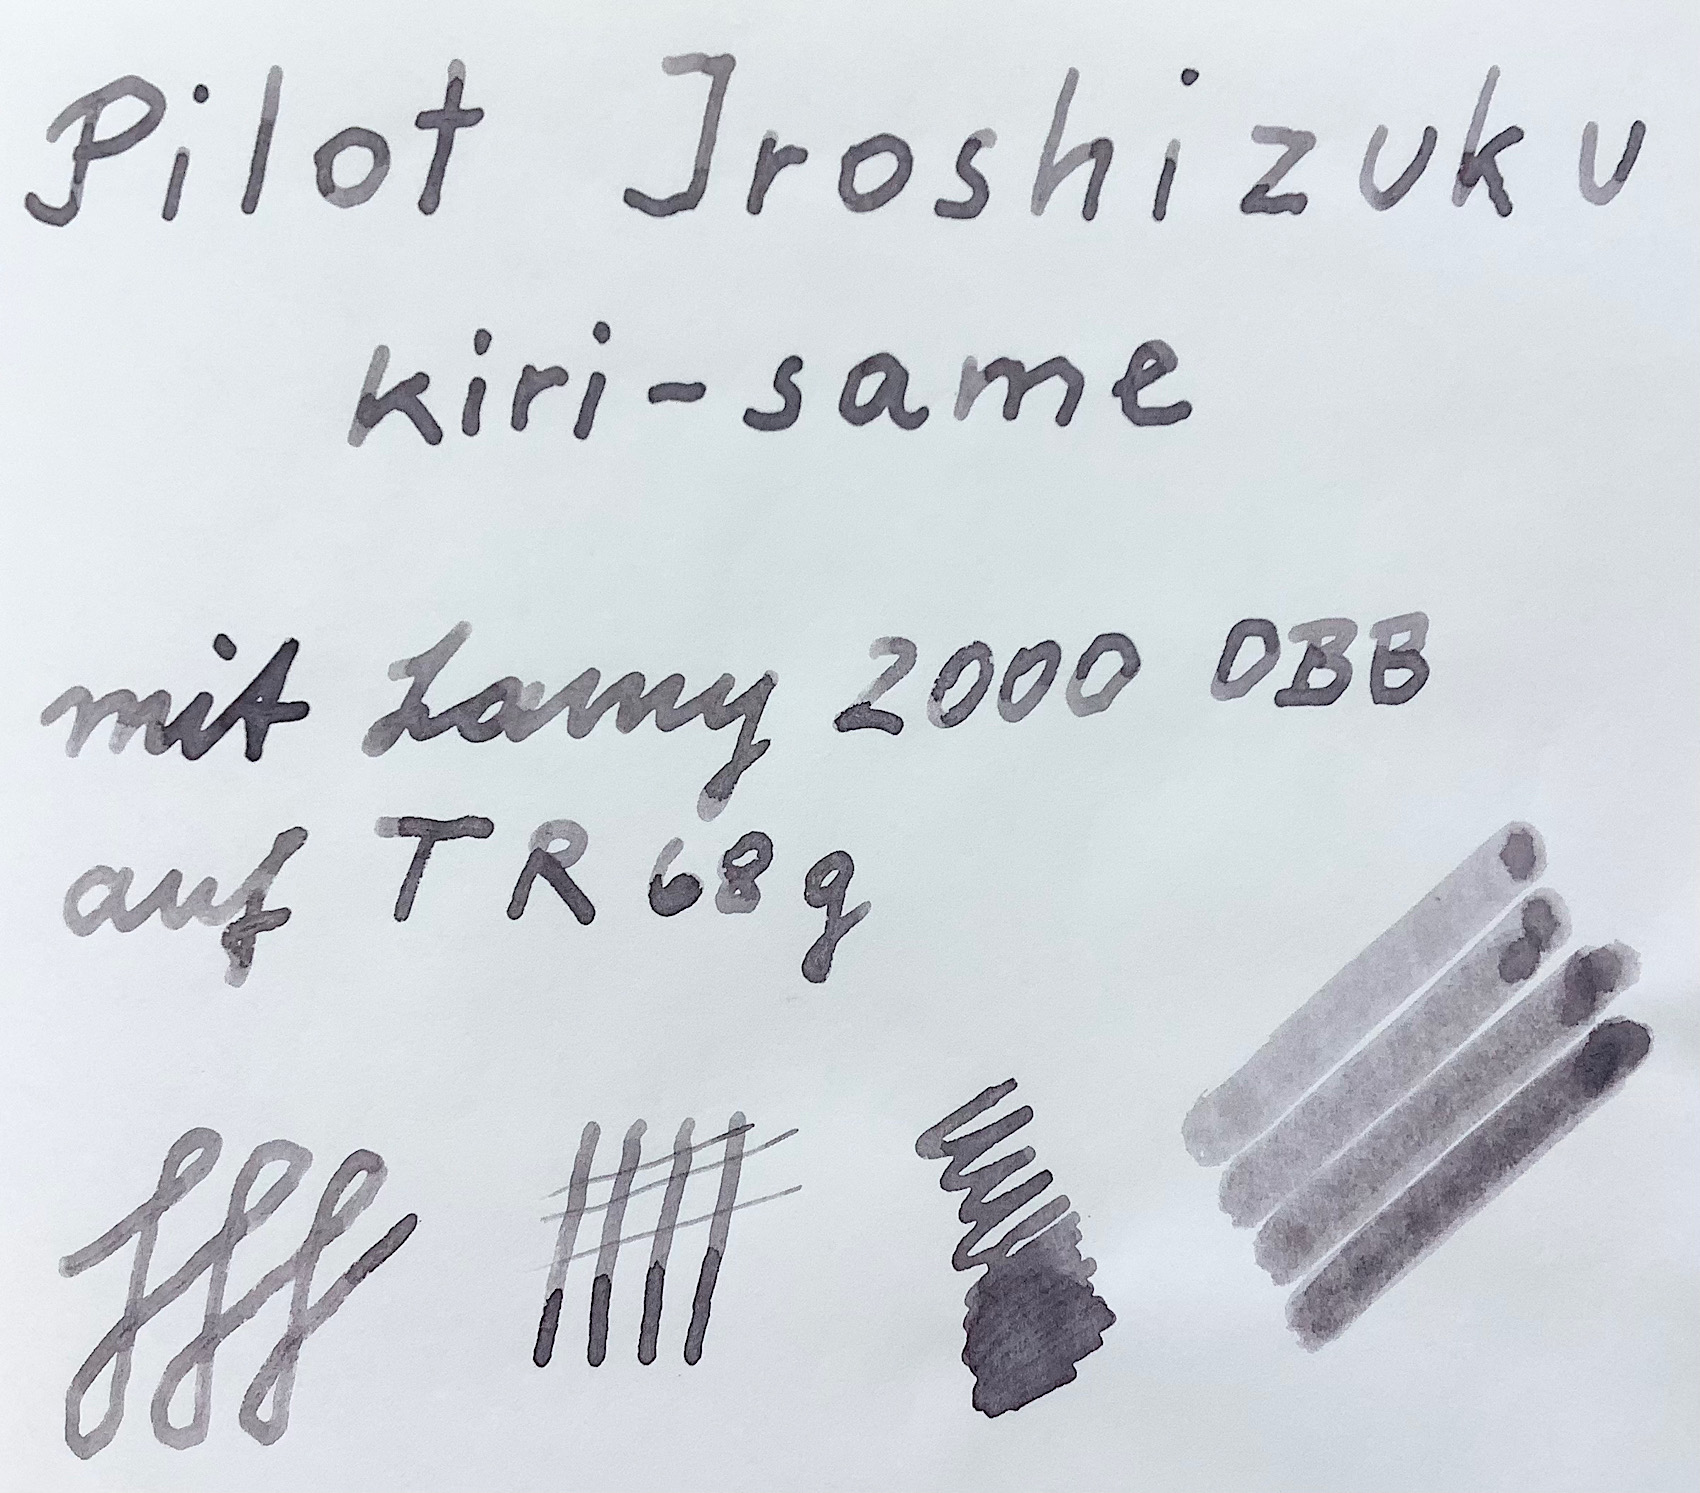 Pilot Iroshizuku
kiri-same
mit Lamy 2000 OBB
auf TR 68g